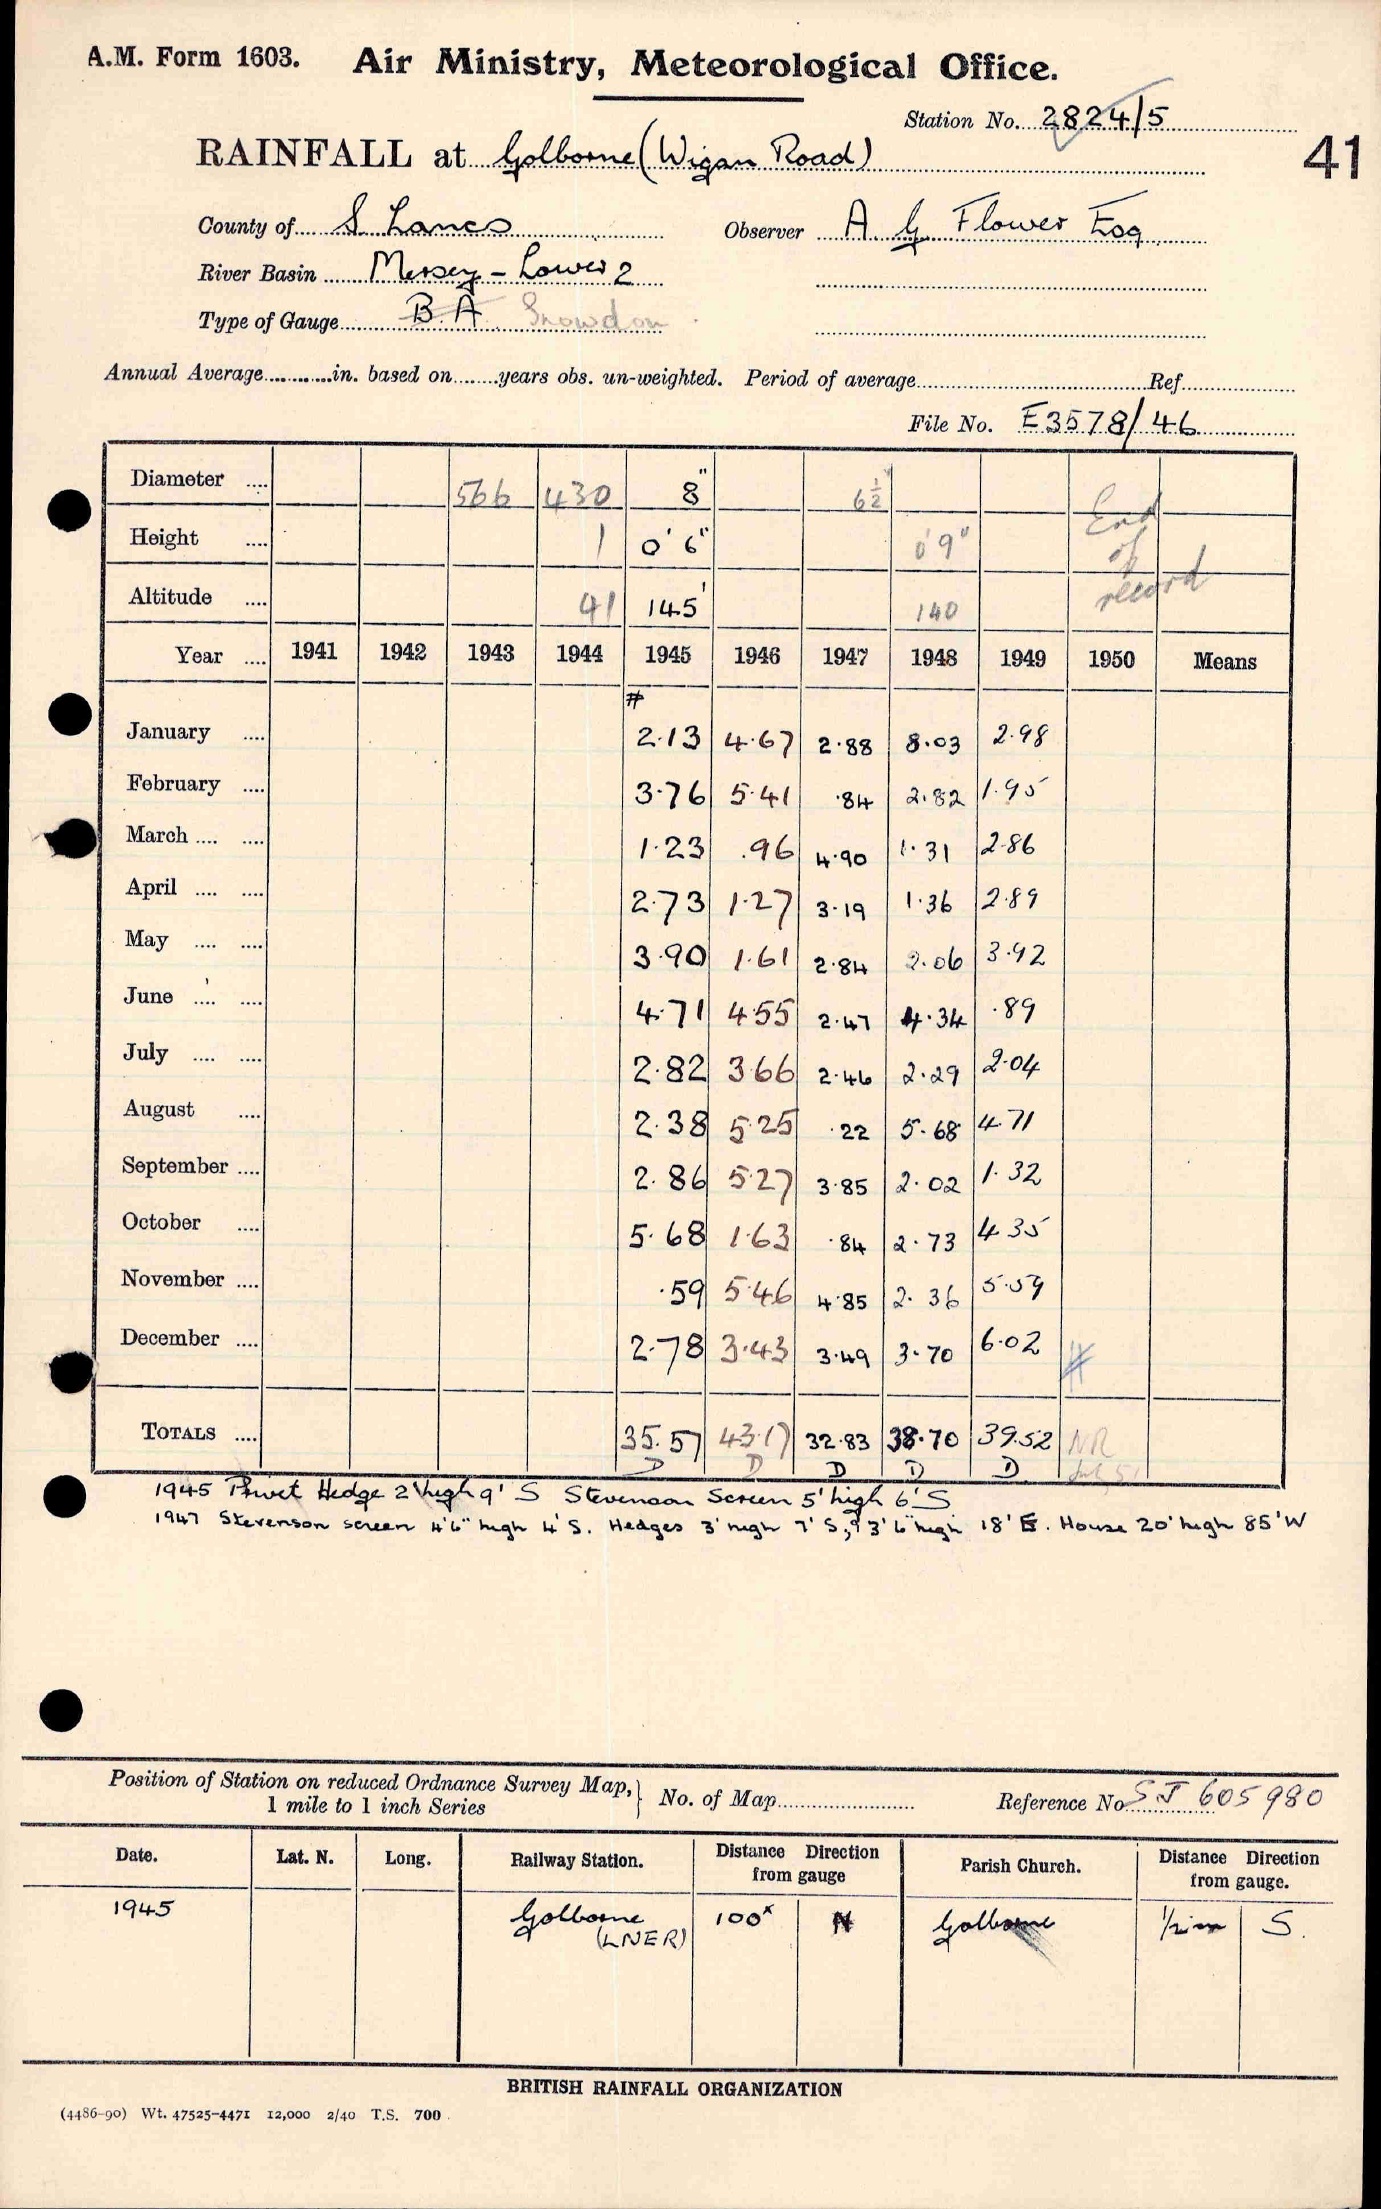 A.M. Form 1603. Air Ministry, Meteorological Office.
Station No. 2824/5
41
RAINFALL at Golborne (Wigan Road)
County of S Lancs Observer A. G. Flower Esq
River Basin Mersey - Lower 2
Type of Gauge B.A Snowdon
Annual Average............in. based on........years obs. un-weighted. Period of average........ Ref........
File No. E3578/46
Diameter .... 566 430 8" 6½"
Height .... 1 0' 6" 0' 9"
Altitude .... 41 145' 140
End of record
Year .... 1941 1942 1943 1944 1945 1946 1947 1948 1949 1950 Means
#
January .... 2.13 4.67 2.88 8.03 2.98
February .... 3.76 5.41 .84 2.82 1.95
March .... .... 1.23 .96 4.90 1.31 2.86
April .... .... 2.73 1.27 3.19 1.36 2.89
May .... .... 3.90 1.61 2.84 2.06 3.92
June .... .... 4.71 4.55 2.47 4.34 .89
July .... .... 2.82 3.66 2.46 2.29 2.04
August .... 2.38 5.25 .22 5.68 4.71
September .... 2.86 5.27 3.85 2.02 1.32
October .... 5.68 1.63 .84 2.73 4.35
November .... .59 5.46 4.85 2.36 5.59
December .... 2.78 3.43 3.49 3.70 6.02 #
TOTALS .... 35.57 43.17 32.83 38.70 39.52 NR
D D D D D July 51
1945 Privet Hedge 2' high 9' S Stevenson Screen 5' high 6' S
1947 Stevenson screen 4'6" high 4' S. Hedges 3' high 7' S, & 3' 6" high 18' E. House 20' high 85' W
Position of Station on reduced Ordnance Survey Map, 1 mile to 1 inch Series } No. of Map........ Reference No SJ 605980
Date. Lat. N. Long. Railway Station. Distance Direction from gauge Parish Church. Distance Direction from gauge.
1945 Golborne (LNER) 100x N Golborne 1/2 m S.
BRITISH RAINFALL ORGANIZATION
(4486-90) Wt. 47525-4471 12,000 2/40 T.S. 700